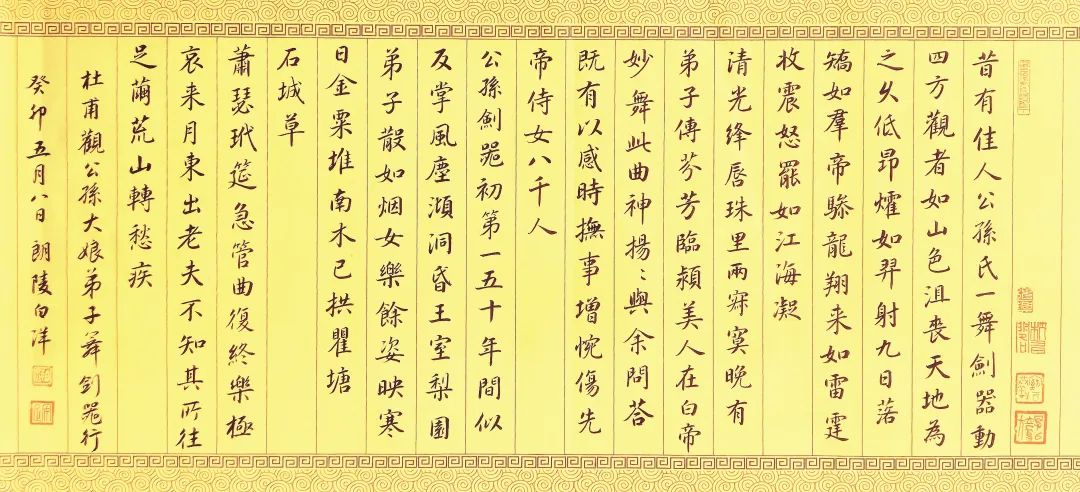 昔有佳人公孫氏一舞劍器動
四方觀者如山色沮喪天地為
之久低昂㸌如羿射九日落
矯如羣帝驂龍翔来如雷霆
收震怒罷如江海凝
清光絳唇珠里兩寂寞晚有
弟子傳芬芳臨潁美人在白帝
妙舞此曲神揚〻與余問答
既有以感時撫事增惋傷先
帝侍女八千人
公孫劍噐初第一五十年間似
反掌風塵澒洞昏王室梨園
弟子散如烟女樂餘姿映寒
日金粟堆南木已拱瞿塘
石城草
蕭瑟玳筵急管曲復終樂極
哀来月東出老夫不知其所往
足繭荒山轉愁疾
杜甫觀公孫大娘弟子舞剑噐行
癸卯五月八日 朗陵白洋